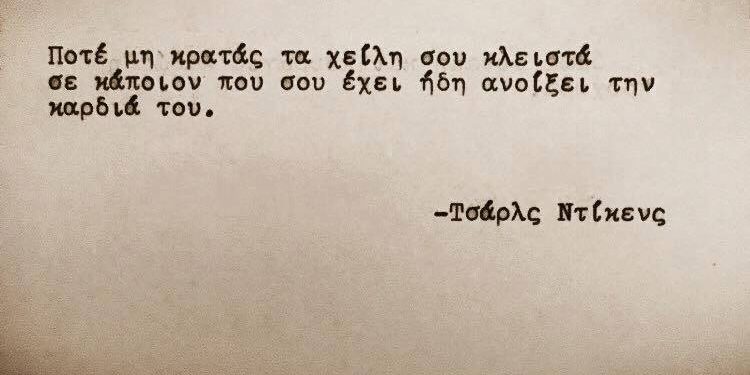 Ποτέ μη κρατάς τα χείλη σου κλειστά
σε κάποιον που σου έχει ήδη ανοίξει την
καρδιά του.
-Τσάρλς Ντίκενς